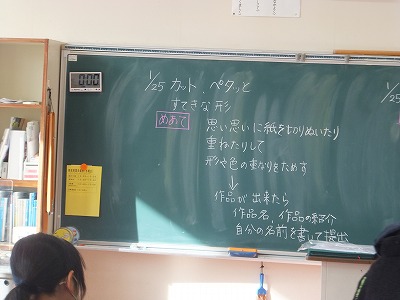 1/25 カット、ペタッと
すてきな形
めあて
思い思いに紙を切りぬいたり
重ねたりして
形や色の重なりをためす
↓
作品が出来たら
作品名、作品の紹介
自分の名前を書いて提出
000
1/25